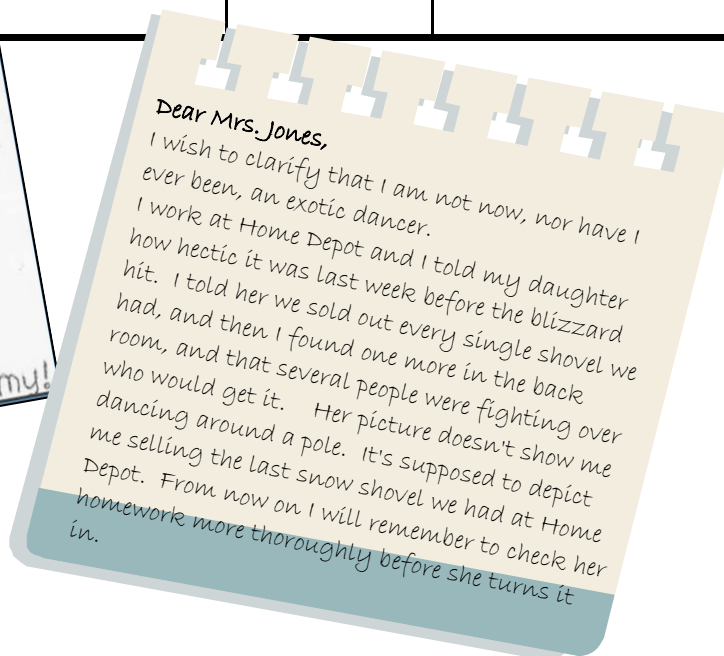 my!
Dear Mrs. Jones,
I wish to clarify that I am not now, nor have I
ever been, an exotic dancer.
I work at Home Depot and I told my daughter
how hectic it was last week before the blizzard
hit. I told her we sold out every single shovel we
had, and then I found one more in the back
room, and that several people were fighting over
who would get it. Her picture doesn't show me
dancing around a pole. It's supposed to depict
me selling the last snow shovel we had at Home
Depot. From now on I will remember to check her
homework more thoroughly before she turns it
in.